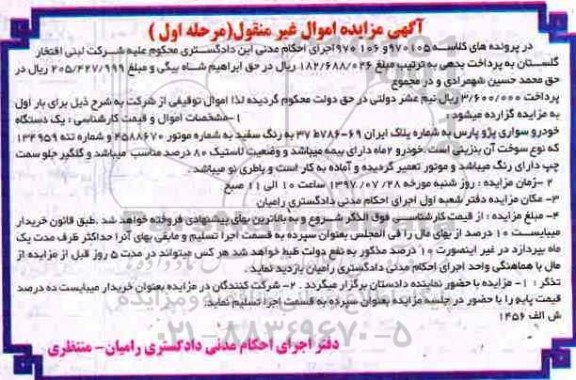 آگهی مزایده اموال غیر منقول(مرحله اول )
در پرونده های کلاسه 970105و 970106اجرای احکام مدنی این دادگستری محکوم علیه شرکت لبنی افتخار
گلستان به پرداخت بدهی به ترتیب مبلغ 182/688/026 ریال در حق ابراهیم شاه بیگی و مبلغ 205/427/999 ریال در
حق محمد حسین شهمرادی و در مجموع
پرداخت 3/600/000 ریال نیم عشر دولتی در حق دولت محکوم گردیده لذا اموال توقیفی از شرکت به شرح ذیل برای بار اول
به مزایده گزارده میشود : 1-مشخصات اموال و قیمت کارشناسی : یک دستگاه
خودرو سواری پژو پارس به شماره پلاک ایران 69-786ط 37 به رنگ سفید به شماره موتور 4588670 و شماره تنه 132959
که نوع سوخت آن بنزینی است .خودرو 2ماه دارای بیمه میباشد و وضعیت لاستیک 80 درصد مناسب میباشد و گلگیر جلو سمت
چپ دارای رنگ میباشد و موتور تعمیر گردیده و آماده به کار است و باطری نو میباشد .
2 -زمان مزایده : روز شنبه مورخه 1397/07/28 ساعت 10 الی 11 صبح
3- مکان مزایده دفتر شعبه اول اجرای احکام مدنی دادگستری رامیان
4- مبلغ مزایده : از قیمت کارشناسی فوق الذکر شروع و به بالاترین بهای پیشنهادی فروخته خواهد شد .طبق قانون خریدار
میبایست 10 درصد از بهای مال را فی المجلس بعنوان سپرده به قسمت اجرا تسلیم و مابقی بهای آنرا حداکثر ظرف مدت یک
ماه بپردازد در غیر اینصورت 10 درصد مذکور به نفع دولت ضبط خواهد شد هر کس میتواند در مدت 5 روز قبل از مزایده از
مال با هماهنگی واحد اجرای احکام مدنی دادگستری رامیان بازدید نماید.
تذکر : 1- مزایده با حضور نماینده دادستان برگزار میگردد . 2- شرکت کنندگان در مزایده بعنوان خریدار میبایست ده درصد
قیمت پایه را با حضور در جلسه مزایده بعنوان سپرده به قسمت اجرا تسلیم نماید.
ش الف 1456
دفتر اجرای احکام مدنی دادگستری رامیان- منتظری
021-88349670-5